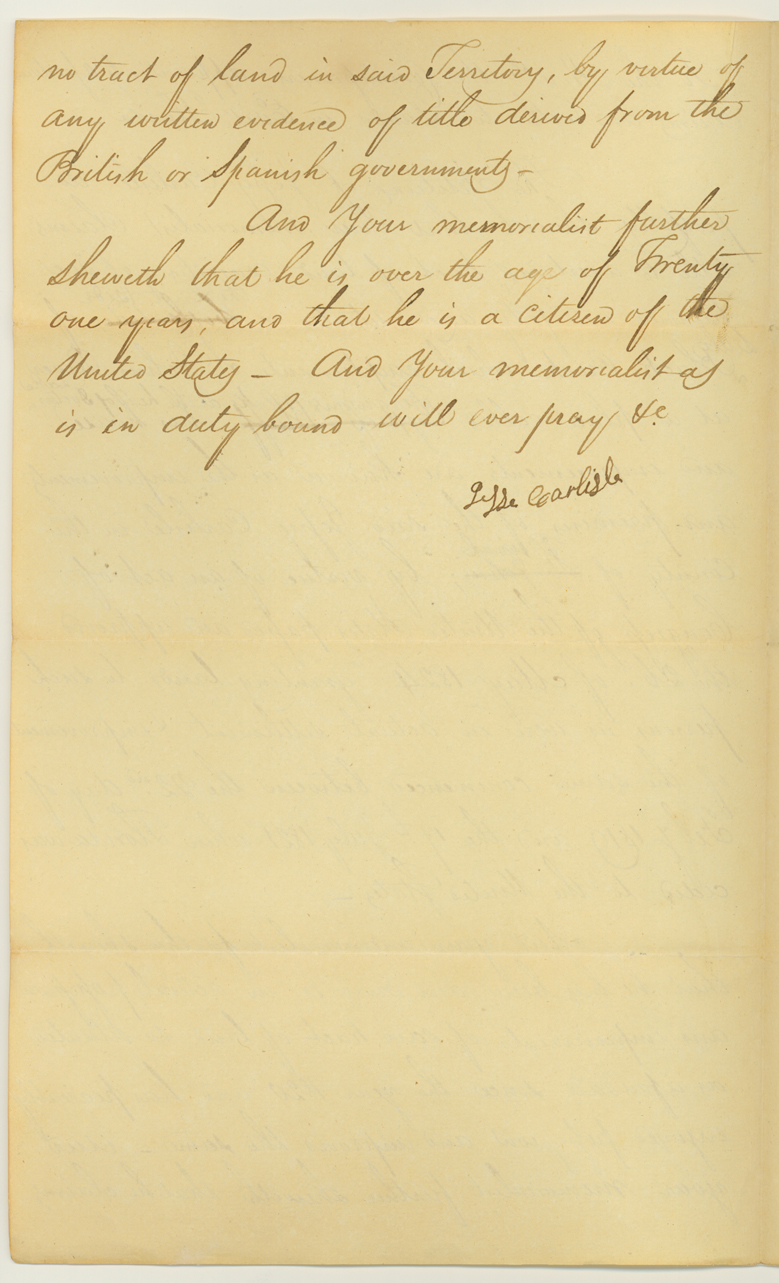 no tract of land in said Territory, by virtue of
any written evidence of title derived from the
British or Spanish governments -
And Your memorialist further
sheweth that he is over the age of Twenty
one years, and that he is a citizen of the
United States - And Your memorialist as
is in duty bound will ever pray &c
Jesse Carlisle